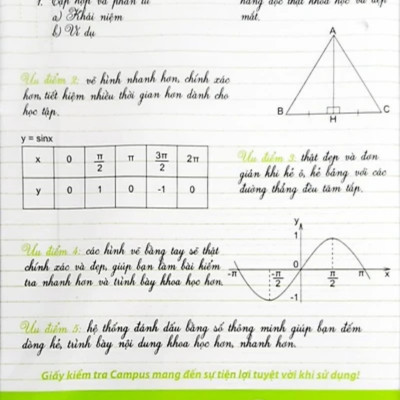 1. Tập hợp và phần tử
a) Khái niệm
b) Ví dụ
hàng dọc thật khoa học và đẹp
mắt.
A
B
H
C
Ưu điểm 2: vẽ hình nhanh hơn, chính xác
hơn, tiết kiệm nhiều thời gian hơn dành cho
học tập.
y = sinx
x 0 π/2 π 3π/2 2π
y 0 1 0 -1 0
Ưu điểm 3: thật đẹp và đơn
giản khi kẻ ô, kẻ bảng với các
đường thẳng đều tăm tắp.
Ưu điểm 4: các hình vẽ bằng tay sẽ thật
chính xác và đẹp, giúp bạn làm bài kiểm
tra nhanh hơn và trình bày khoa học hơn.
y
1
-π -π/2 0 π/2 π x
-1
Ưu điểm 5: hệ thống đánh dấu bằng số thông minh giúp bạn đếm
dòng kẻ, trình bày nội dung khoa học hơn, nhanh hơn.
Giấy kiểm tra Campus mang đến sự tiện lợi tuyệt vời khi sử dụng!